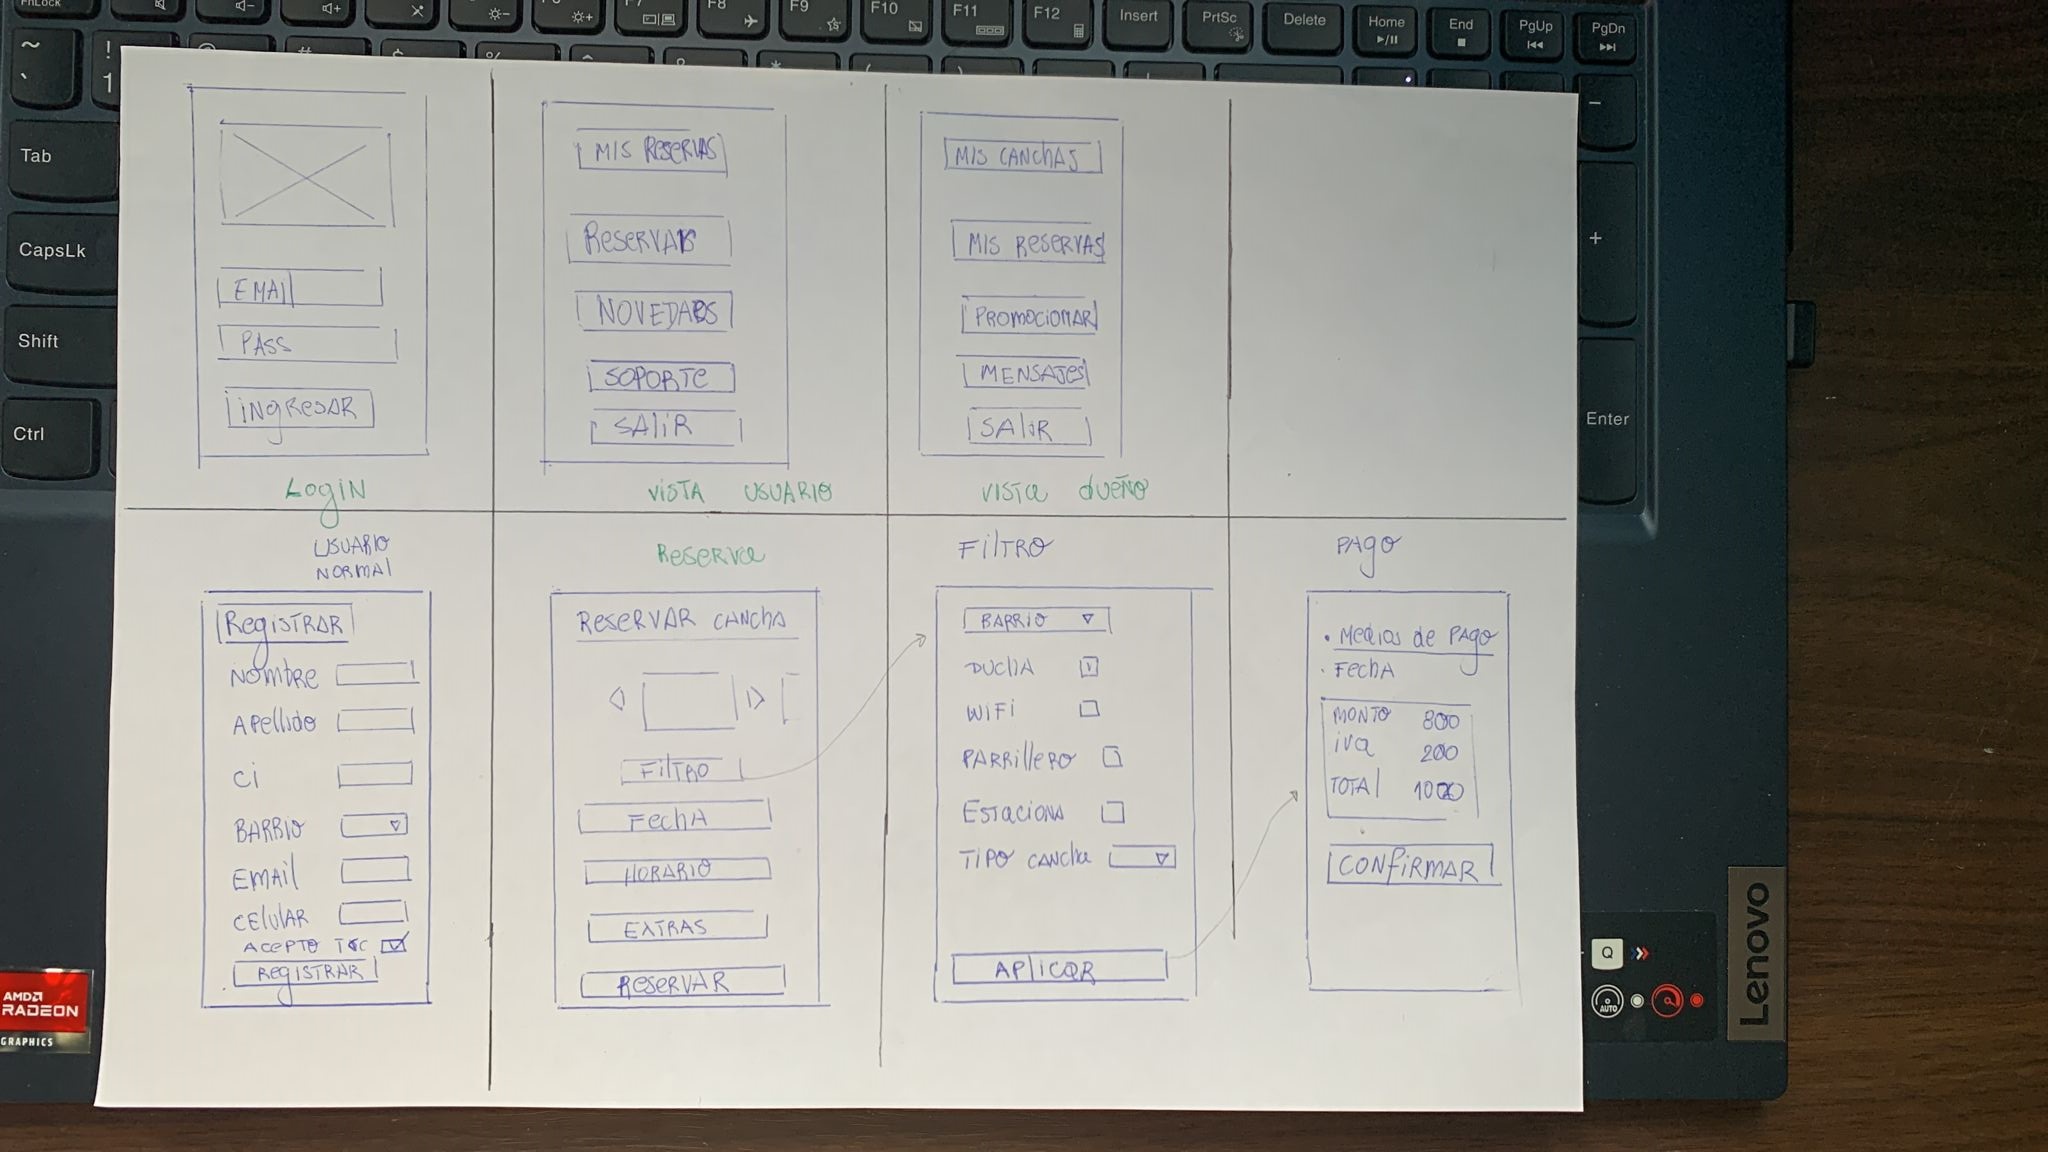 FnLock
F7
F8
F9
F10
F11
F12
Insert
PrtSc
Delete
Home
End
PgUp
PgDn
~
`
!
1
Tab
CapsLk
Shift
Ctrl
-
+
Enter
EMAIL
PASS
INGRESAR
LOGIN
MIS RESERVAS
RESERVAR
NOVEDADES
SOPORTE
SALIR
VISTA USUARIO
MIS CANCHAS
MIS RESERVAS
PROMOCIONAR
MENSAJES
SALIR
VISTA DUEÑO
USUARIO
NORMAL
REGISTRAR
NOMBRE
APELLIDO
CI
BARRIO
EMAIL
CELULAR
ACEPTO TYC
REGISTRAR
RESERVA
RESERVAR CANCHA
FILTRO
FECHA
HORARIO
EXTRAS
RESERVAR
FILTRO
BARRIO
DUCHA
WIFI
PARRILLERO
ESTACIONA
TIPO CANCHA
APLICAR
PAGO
• MEDIOS DE PAGO
• FECHA
MONTO 800
IVA 200
TOTAL 1000
CONFIRMAR
AMD
RADEON
GRAPHICS
Q
AUTO
Lenovo